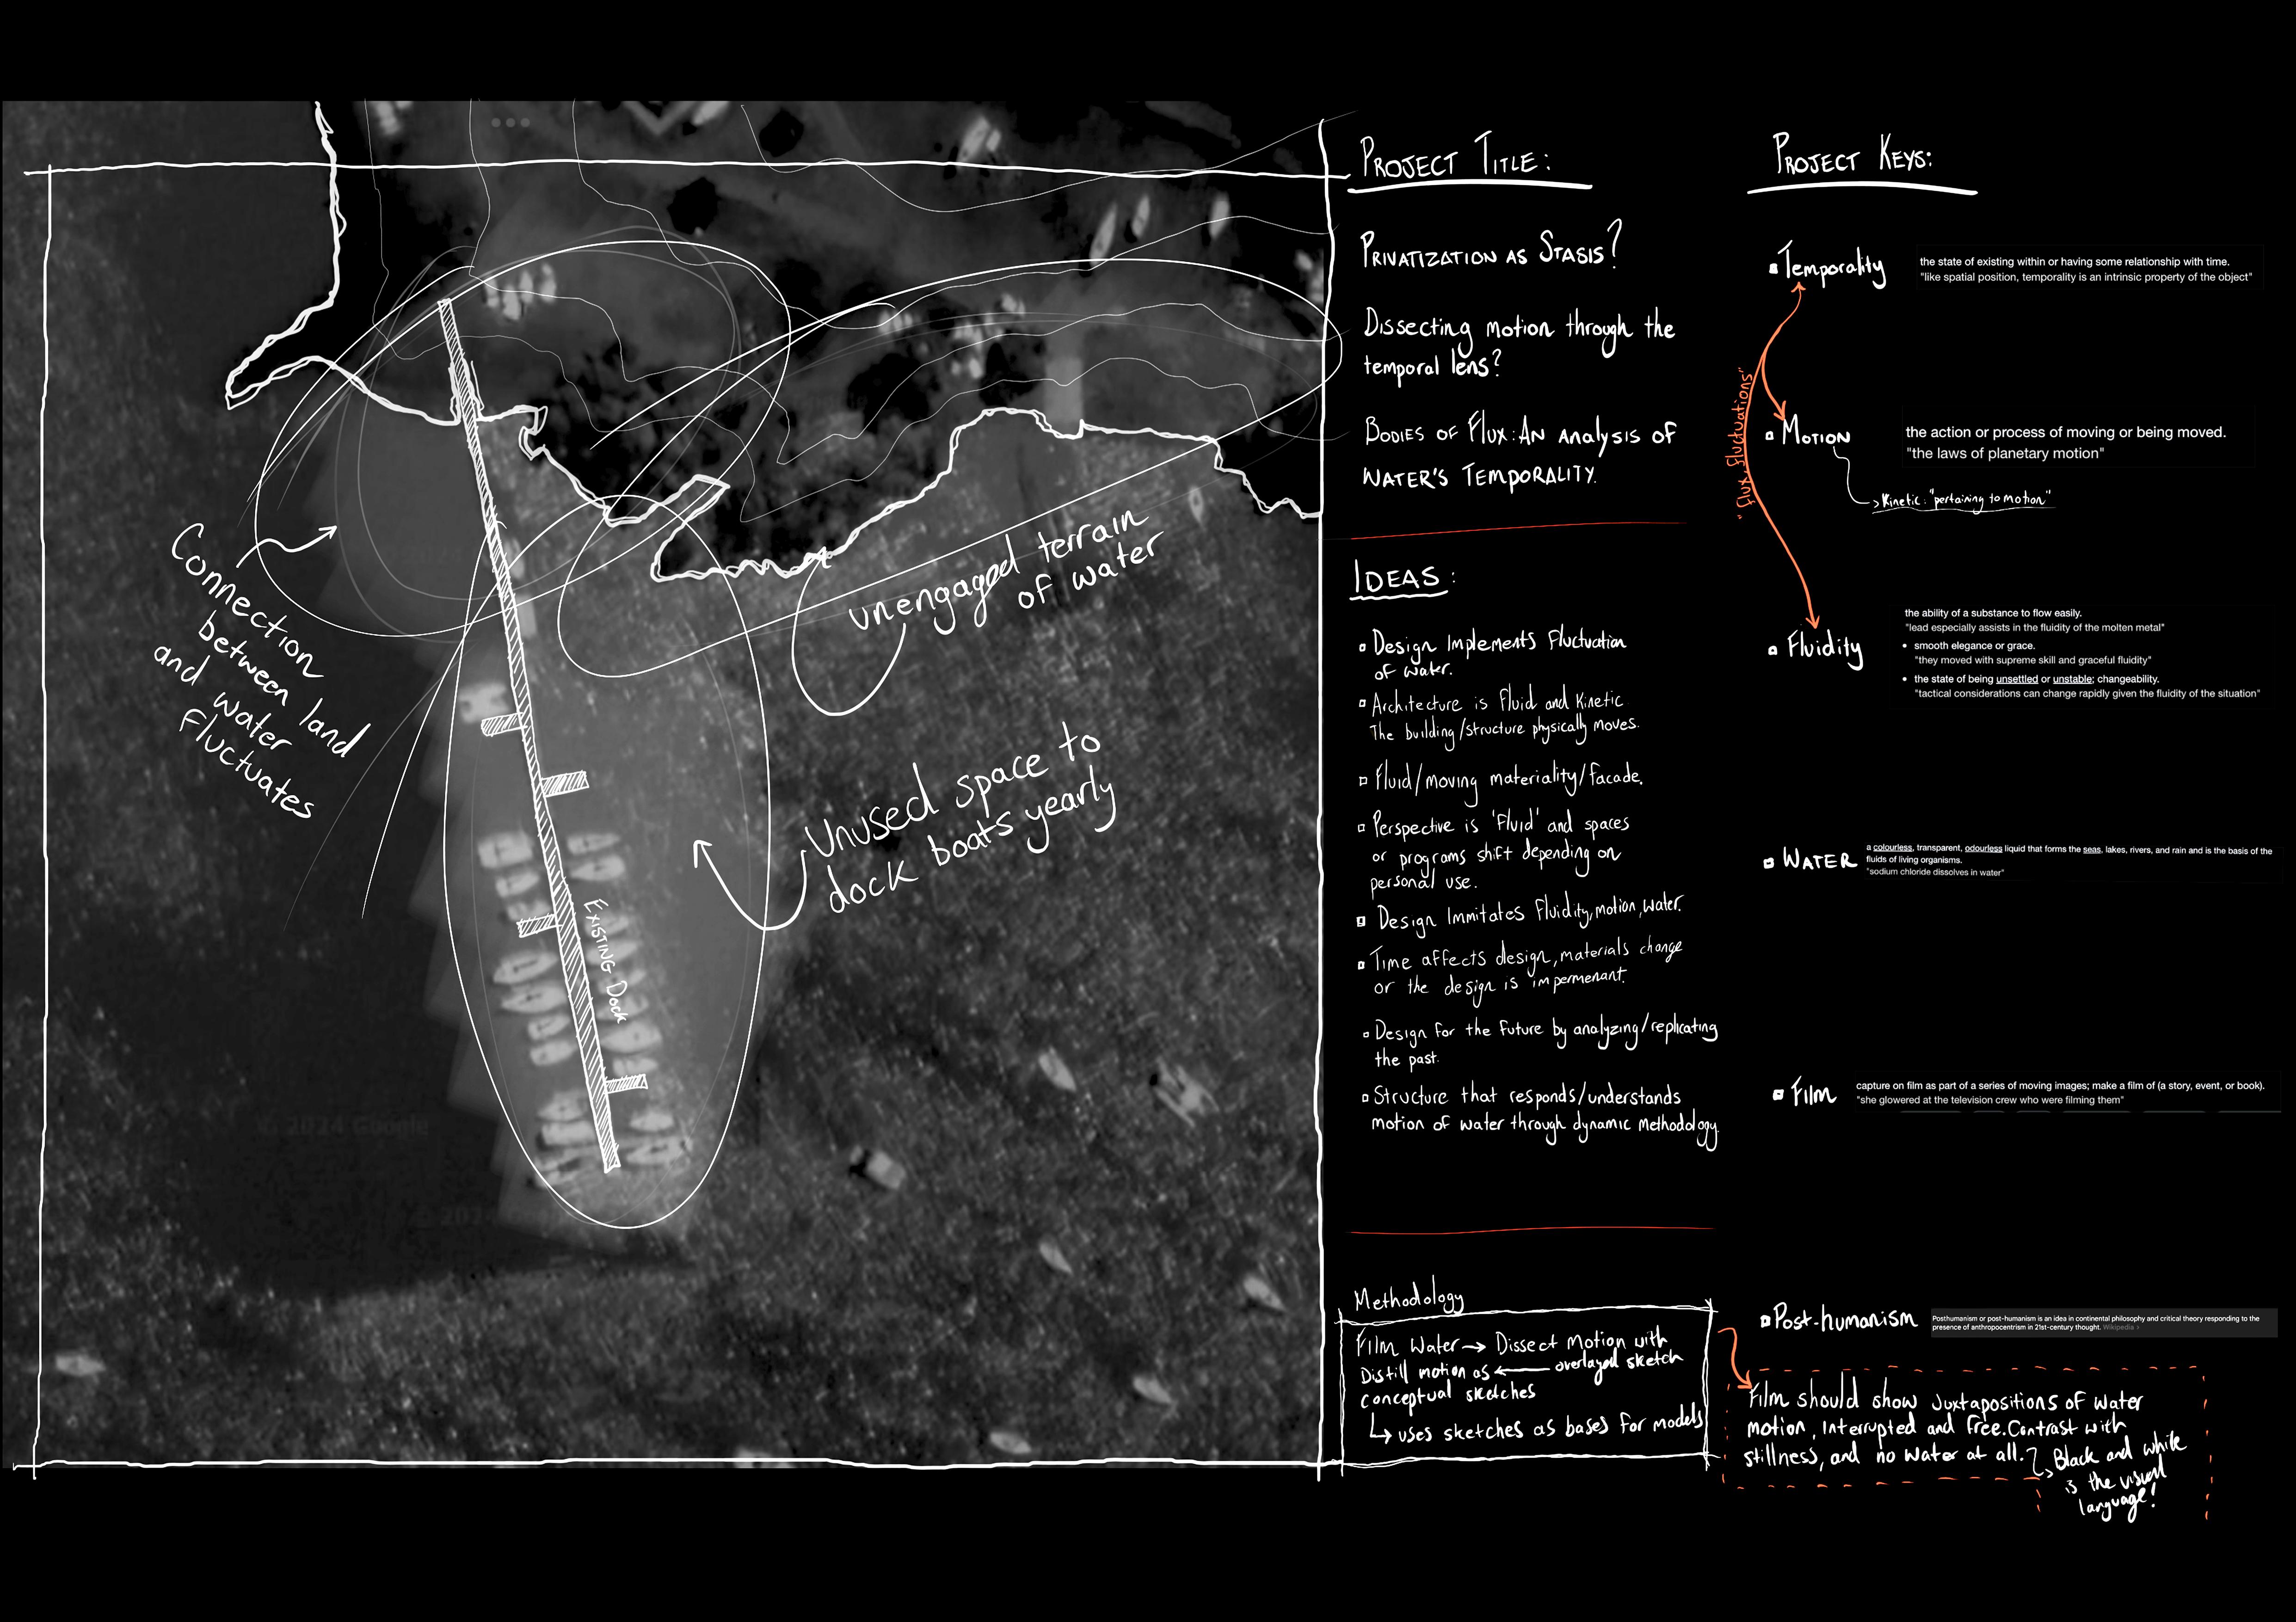 Connection
between land
and water
Fluctuates
unengaged terrain
of water
Unused space to
dock boats yearly
Existing Dock
2024 Google
202
Project Title:
Privatization as Stasis?
Dissecting motion through the
temporal lens?
Bodies of Flux: An Analysis of
Water's Temporality.
Ideas:
Design Implements Fluctuation
of water.
Architecture is Fluid and Kinetic
The building/structure physically moves.
Fluid/moving materiality/facade.
Perspective is 'Fluid' and spaces
or programs shift depending on
personal use.
Design Immitates Fluidity, motion, water.
Time affects design, materials change
or the design is impermenant.
Design for the future by analyzing/replicating
the past.
Structure that responds/understands
motion of water through dynamic methodology.
Methodology
Film Water → Dissect Motion with
Distill motion as ← overlayed sketch
conceptual sketches
↳ uses sketches as bases for models
Project Keys:
Temporality
the state of existing within or having some relationship with time.
"like spatial position, temporality is an intrinsic property of the object"
"Flux, Fluctuations"
Motion
the action or process of moving or being moved.
"the laws of planetary motion"
> Kinetic: "pertaining to motion"
Fluidity
the ability of a substance to flow easily.
"lead especially assists in the fluidity of the molten metal"
• smooth elegance or grace.
"they moved with supreme skill and graceful fluidity"
• the state of being unsettled or unstable; changeability.
"tactical considerations can change rapidly given the fluidity of the situation"
Water
a colourless, transparent, odourless liquid that forms the seas, lakes, rivers, and rain and is the basis of the
fluids of living organisms.
"sodium chloride dissolves in water"
Film
capture on film as part of a series of moving images; make a film of (a story, event, or book).
"she glowered at the television crew who were filming them"
Post-humanism
Posthumanism or post-humanism is an idea in continental philosophy and critical theory responding to the
presence of anthropocentrism in 21st-century thought. Wikipedia >
Film should show Juxtapositions of water
motion, interrupted and free. Contrast with
stillness, and no water at all.
Black and white
is the visual
language!